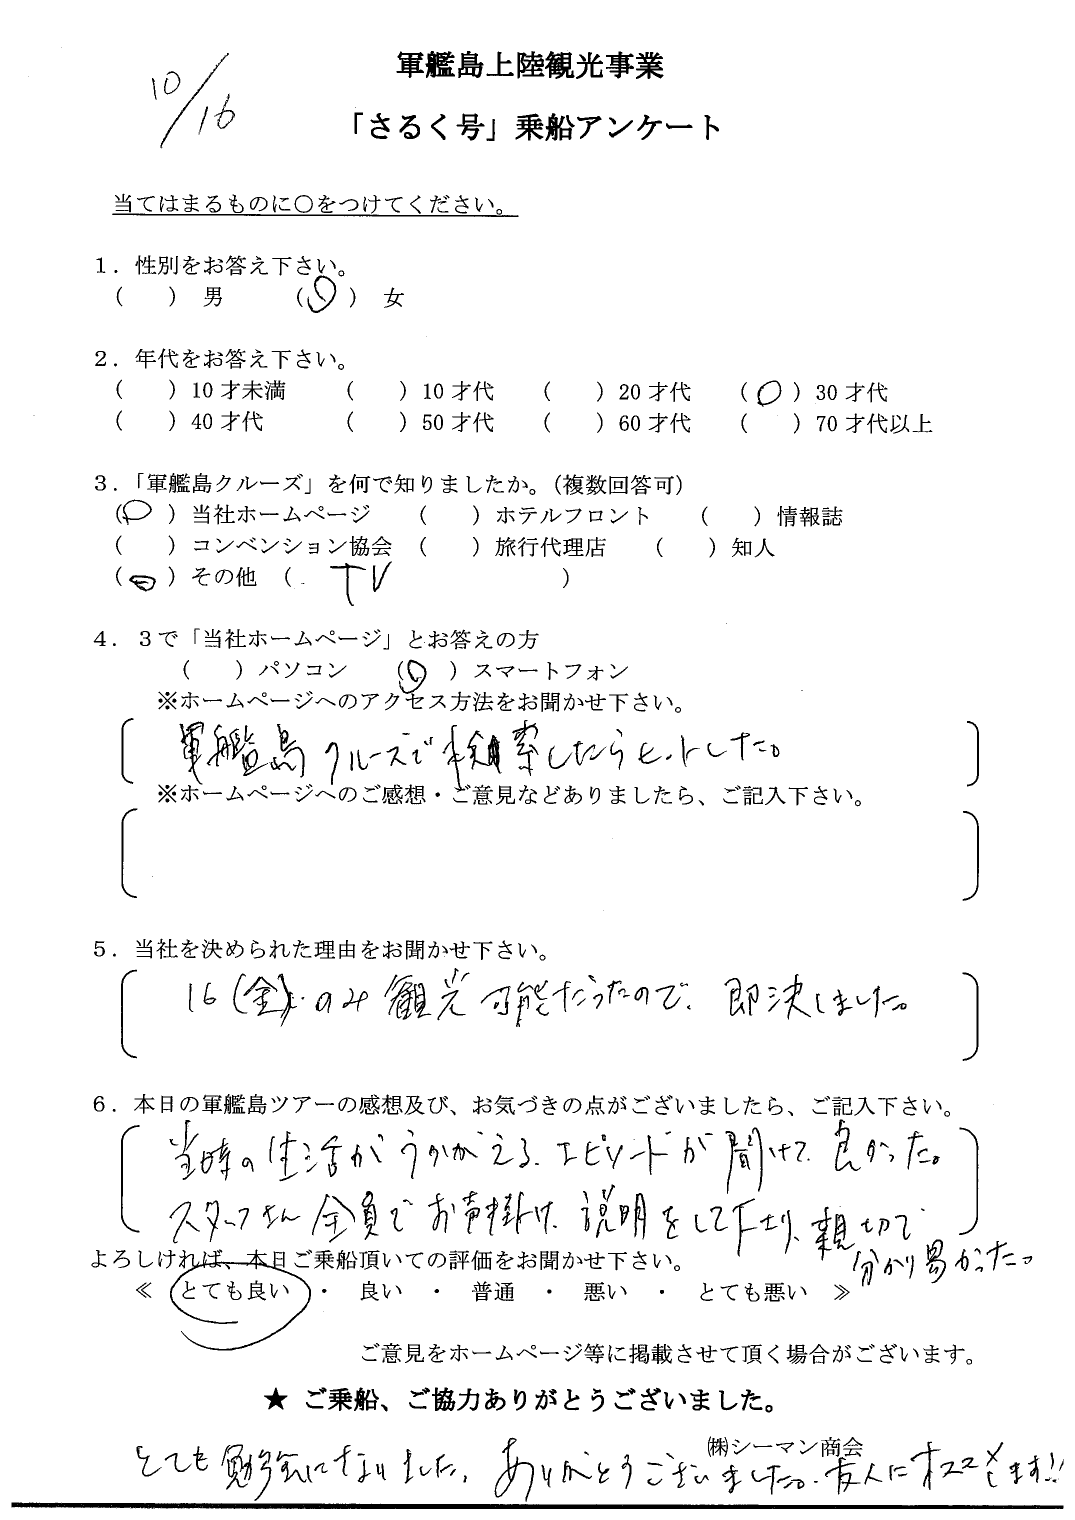 10/16
軍艦島上陸観光事業
「さるく号」乗船アンケート
当てはまるものに○をつけてください。
1．性別をお答え下さい。
(　) 男　(○) 女
2．年代をお答え下さい。
(　) 10才未満　(　) 10才代　(　) 20才代　(○) 30才代
(　) 40才代　(　) 50才代　(　) 60才代　(　) 70才代以上
3．「軍艦島クルーズ」を何で知りましたか。（複数回答可）
(○) 当社ホームページ　(　) ホテルフロント　(　) 情報誌
(　) コンベンション協会　(　) 旅行代理店　(　) 知人
(○) その他 ( TV )
4．3で「当社ホームページ」とお答えの方
(　) パソコン　(○) スマートフォン
※ホームページへのアクセス方法をお聞かせ下さい。
軍艦島クルーズで検索したらヒットした。
※ホームページへのご感想・ご意見などありましたら、ご記入下さい。
5．当社を決められた理由をお聞かせ下さい。
16(金)のみ観光可能だったので、即決しました。
6．本日の軍艦島ツアーの感想及び、お気づきの点がございましたら、ご記入下さい。
当時の生活がうかがえる、エピソードが聞けて良かった。
スタッフさん全員でお声掛け、説明をして下さり、親切で
分かり易かったっ
よろしければ、本日ご乗船頂いての評価をお聞かせ下さい。
≪ とても良い ・ 良い ・ 普通 ・ 悪い ・ とても悪い ≫
ご意見をホームページ等に掲載させて頂く場合がございます。
★ ご乗船、ご協力ありがとうございました。
㈱シーマン商会
とても勉強になりました。ありがとうございました。友人にオススメします!!